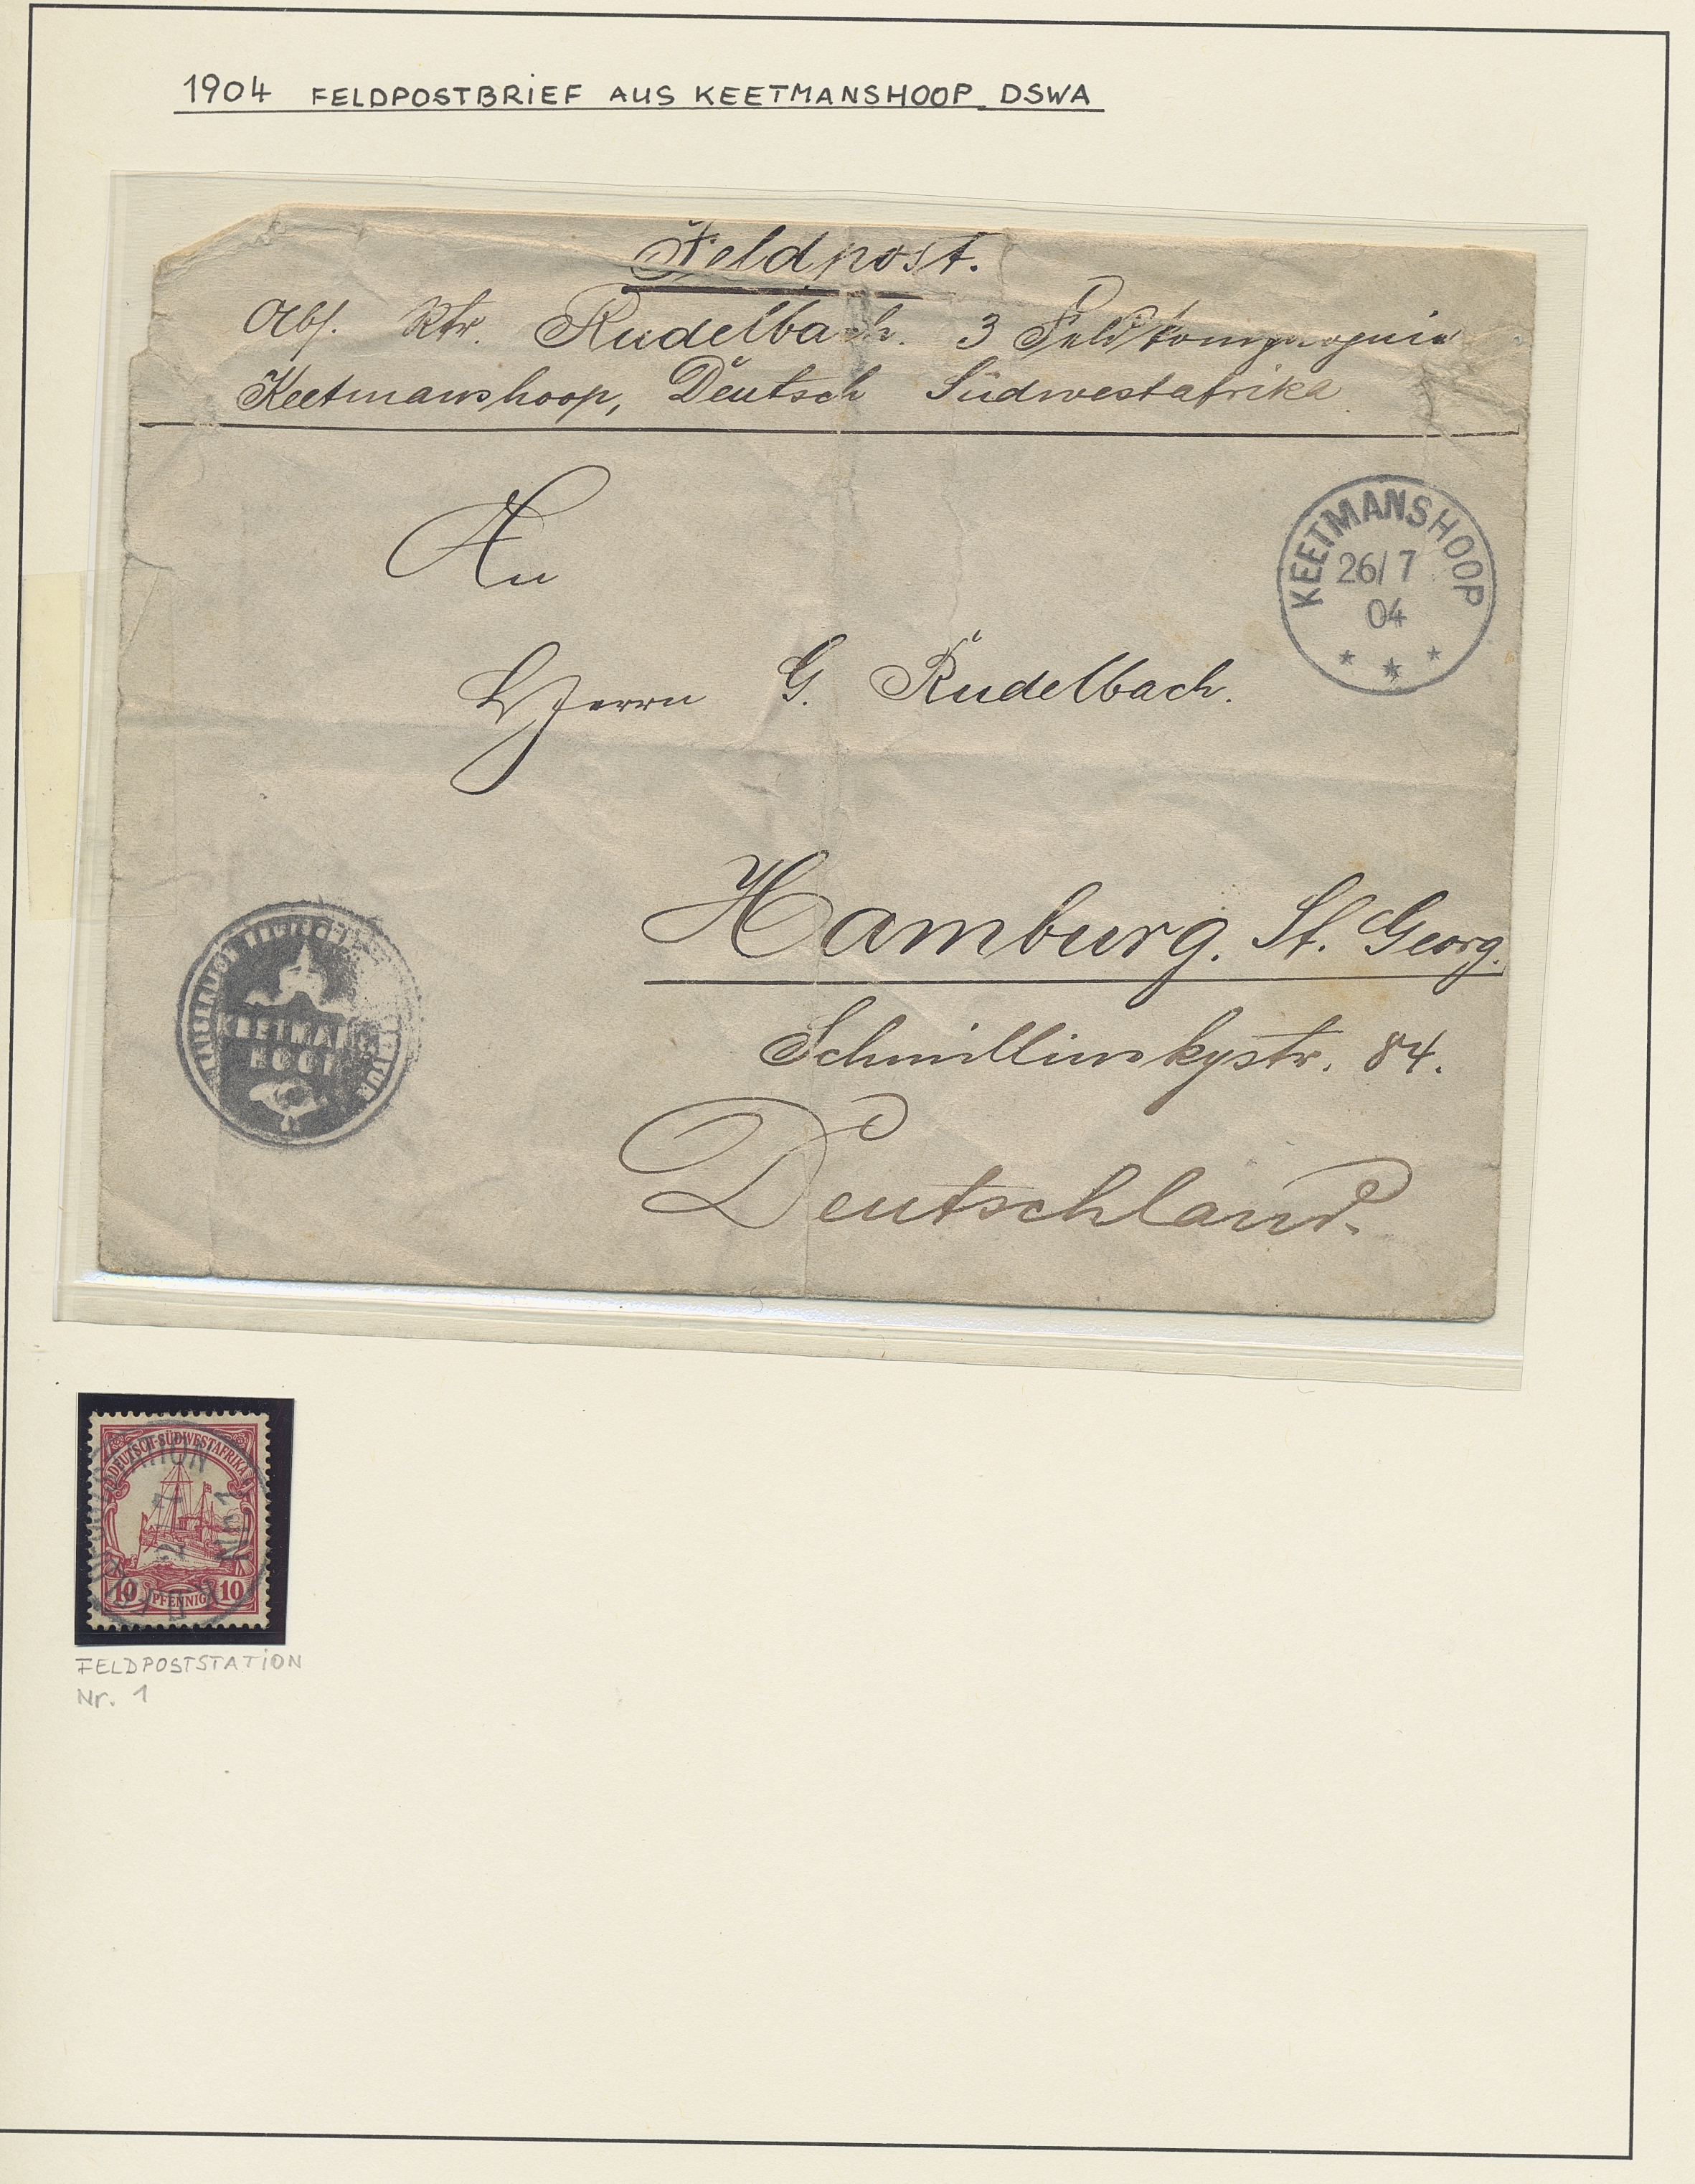 1904 FELDPOSTBRIEF AUS KEETMANSHOOP DSWA
Feldpost.
Abs. Rtr. Rudelbach. 3 Feldkompagnie
Keetmanshoop, Deutsch Südwestafrika
An
KEETMANSHOOP
26/7
04
* * *
Herrn G. Rudelbach.
Hamburg. St. Georg.
Schmillinskystr. 84.
Deutschland.
KAISERLICH DEUTSCHE
KEETMANS
HOOP
DEUTSCH-SÜDWESTAFRIKA
10 PFENNIG 10
FELDPOSTSTATION
Nr. 1